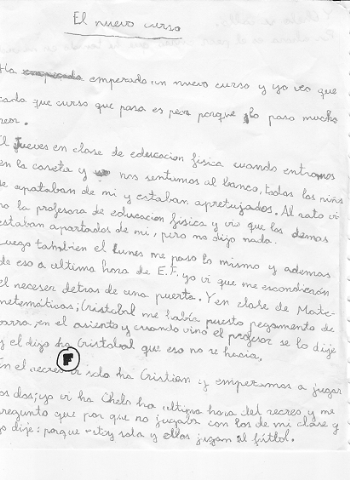 El nuevo curso
Ha empezado un nuevo curso y yo veo que
cada que curso que pasa es peor porque lo paso mucho
peor.
El jueves en clase de educacion fisica cuando entramos
en la caseta y nos sentamos al banco, todas las niñas
se apataban de mi y estaban apretujados. Al rato vi
no la profesora de educacion fisica y vio que los demas
estaban apartados de mi, pero no dijo nada.
Luego tahnbien el lunes me paso lo mismo y ademas
de eso a ultima hora de E.F. yo vi que me escondieron
el neceser detras de una puerta. Y en clase de Mate-
matemáticas, Cristobal me había puesto pegamento de
barra, en el asiento y cuando vino el profesor se lo dije
y el dijo ha Cristobal que eso no se hacia,
F
En el recreo ido ha Cristian y empezamos a jugar
los dos; yo vi ha Chelo ha ultima hora del recreo y me
pregunto que por que no jugaba con los de mi clase y
yo dije: porque estoy sola y ellos jugan al fútbol.